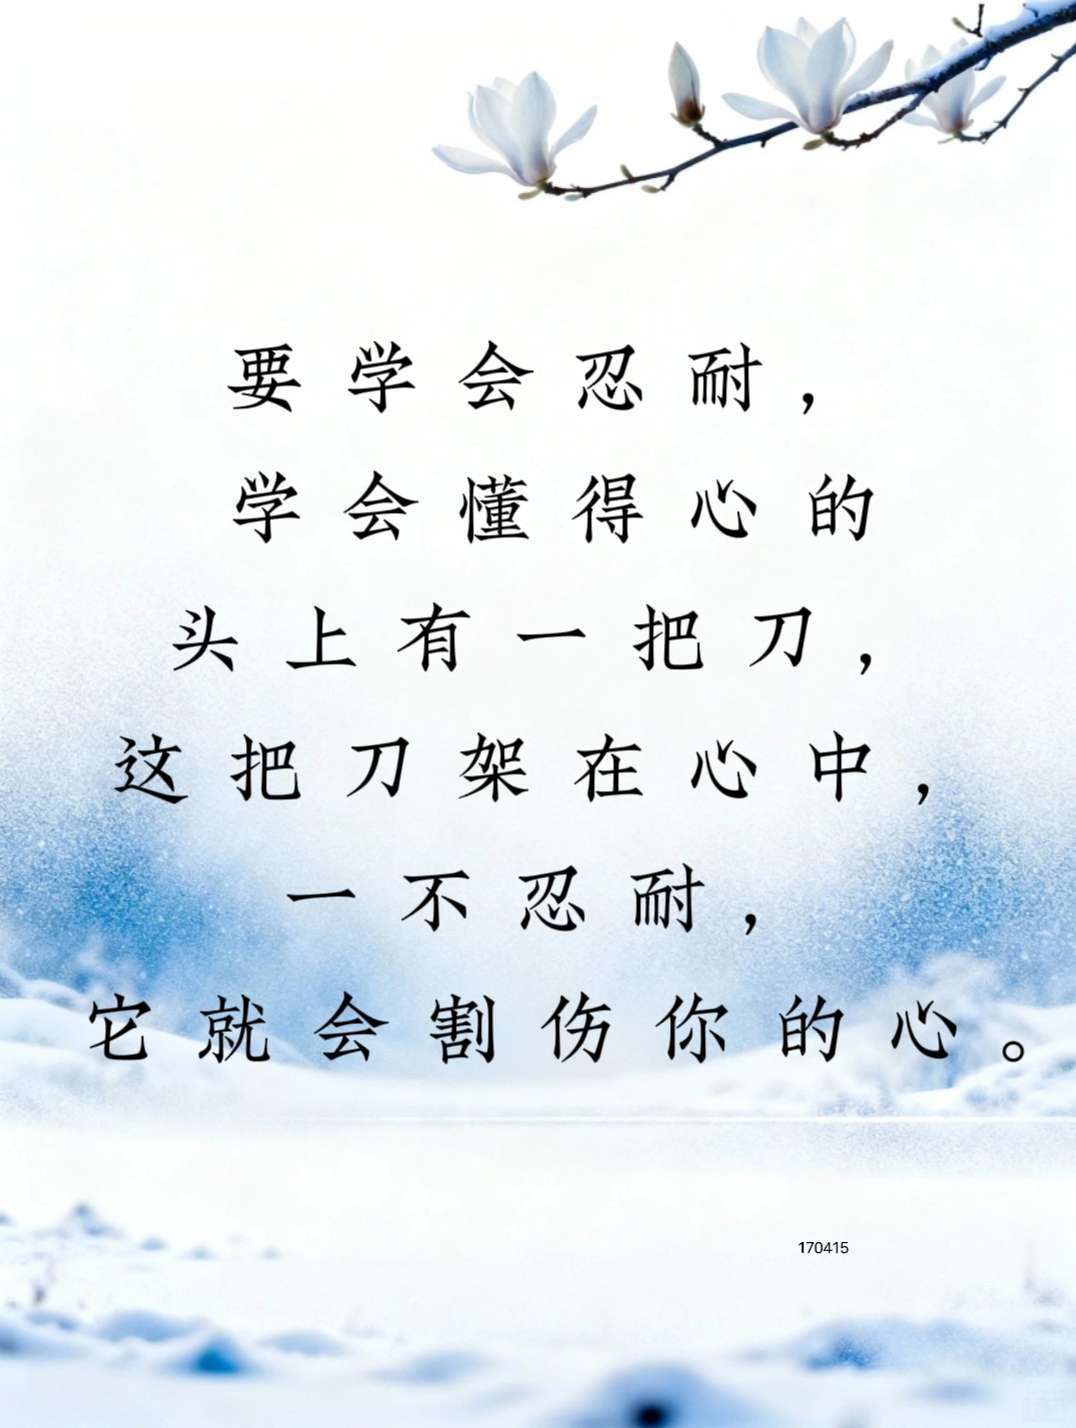 要学会忍耐，
学会懂得心的
头上有一把刀，
这把刀架在心中，
一不忍耐，
它就会割伤你的心。
170415